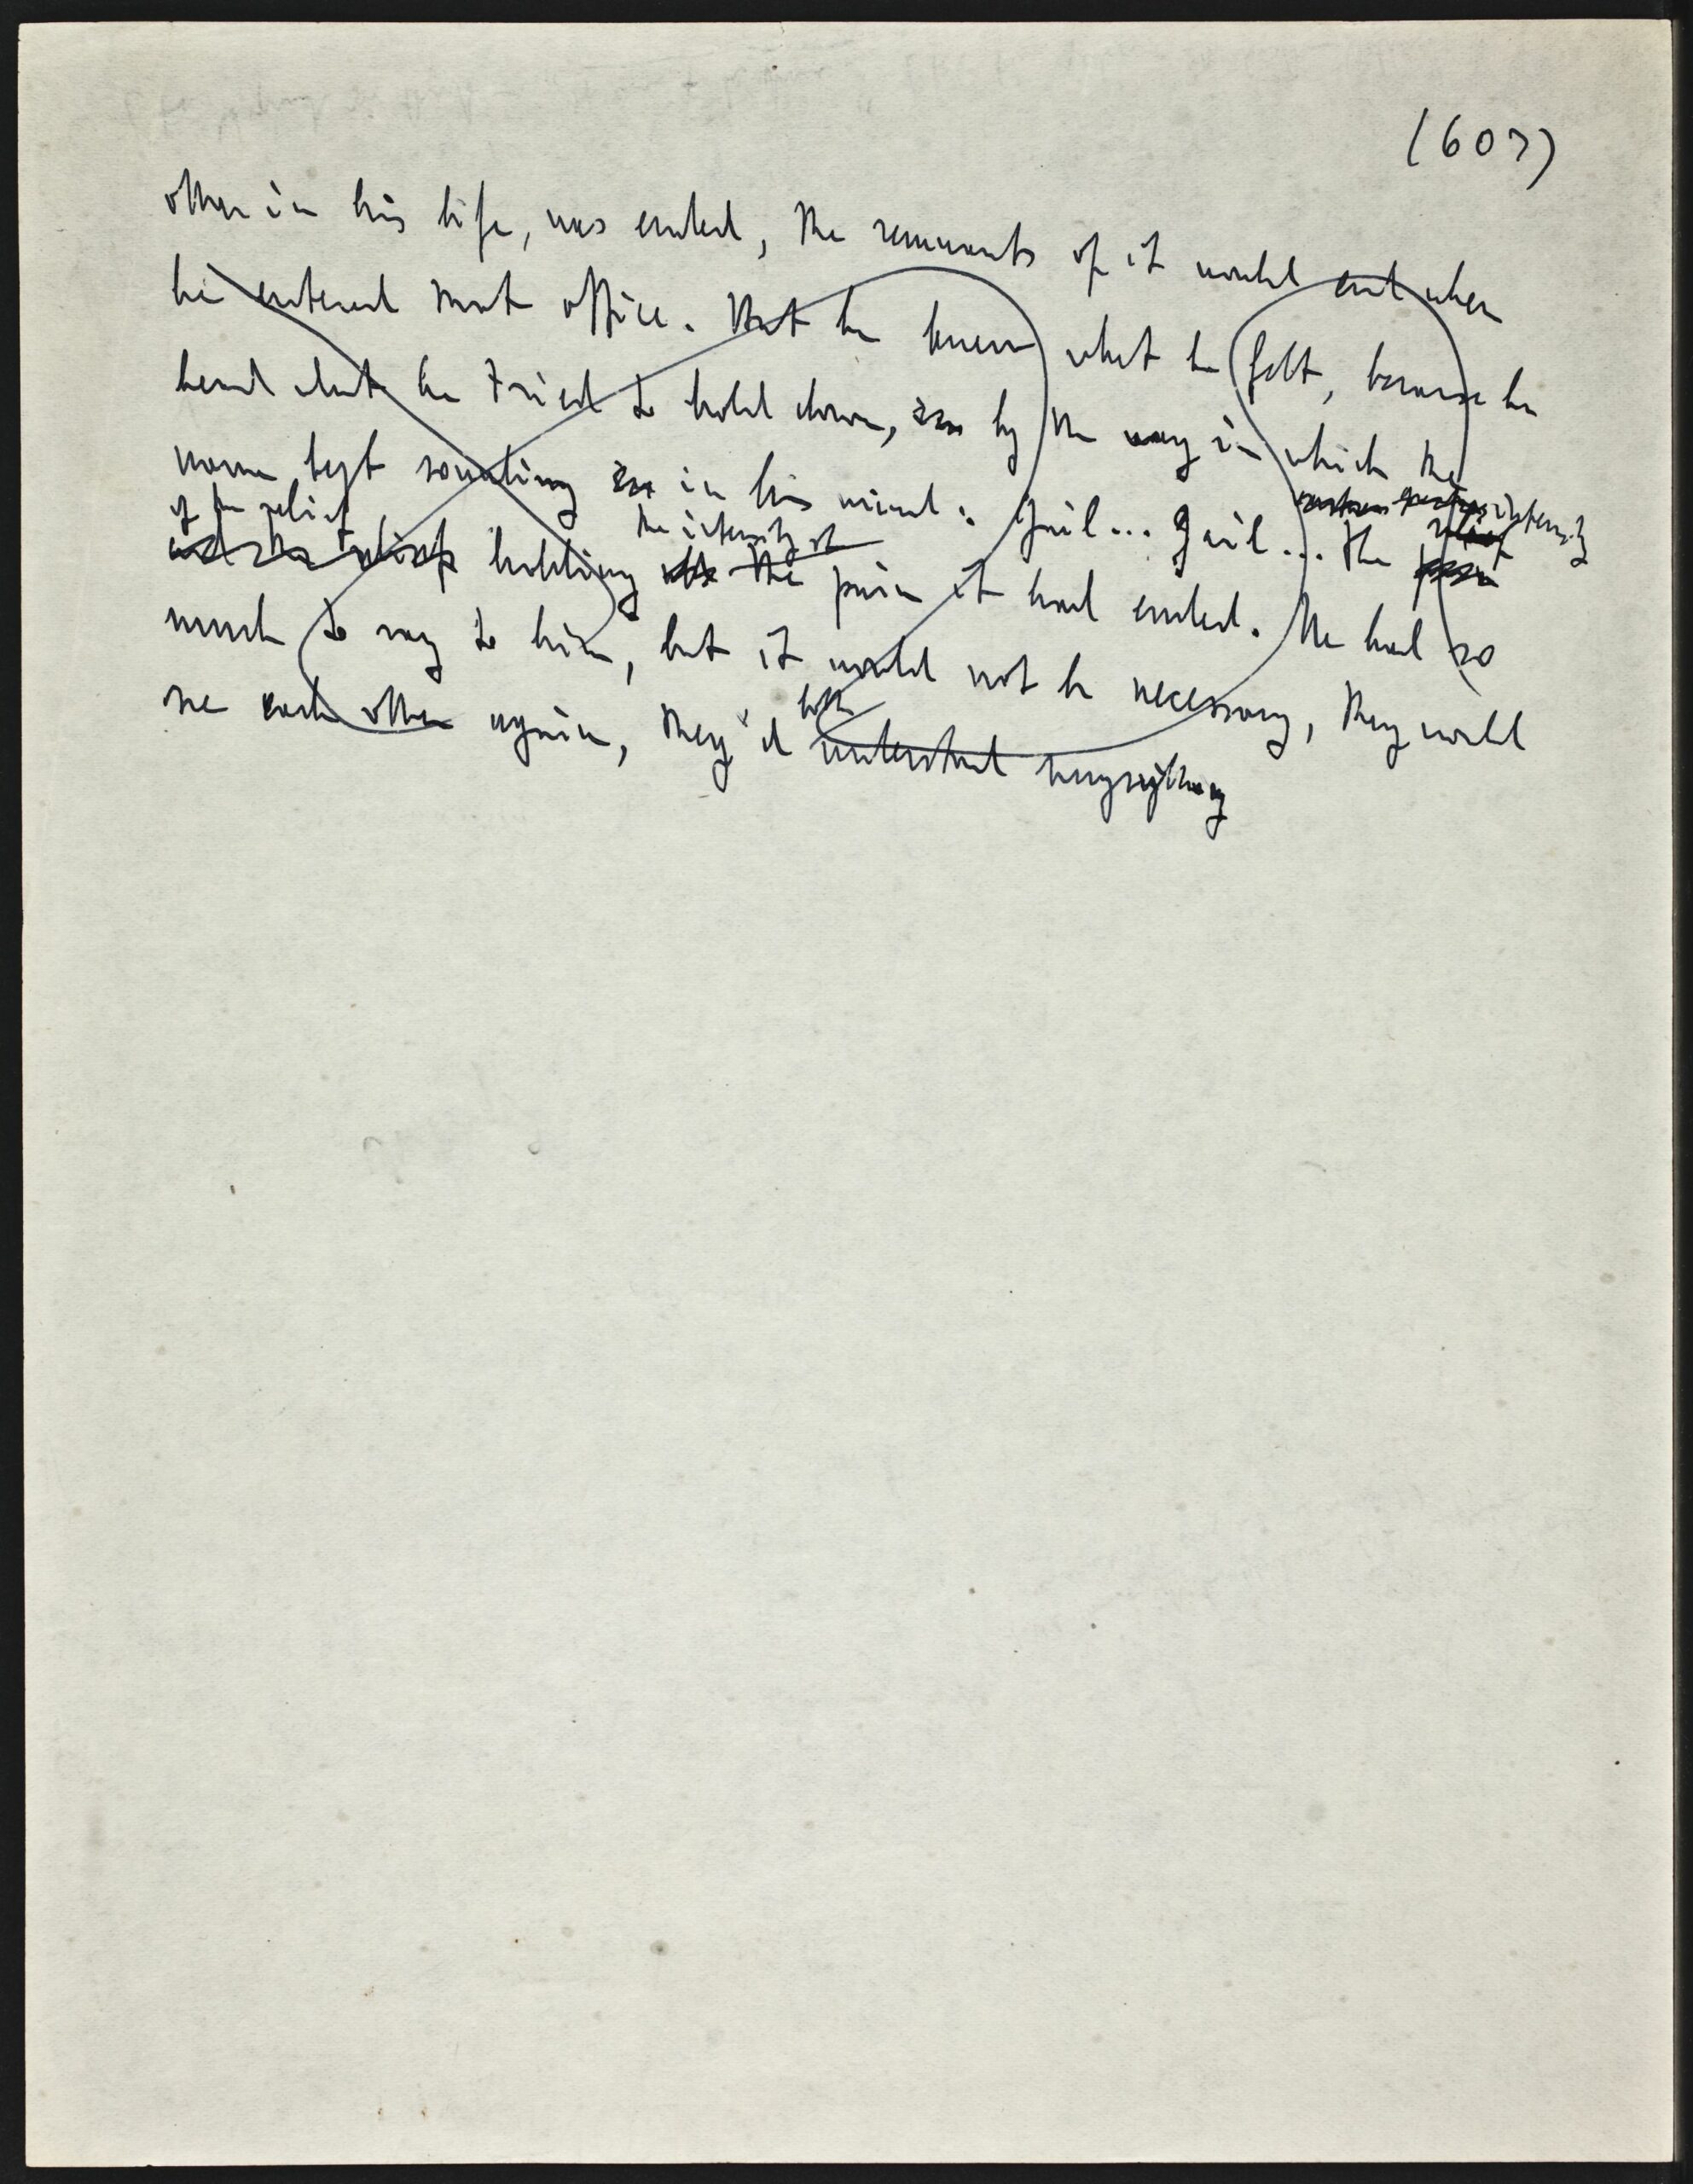 (607)
other in his life, was ended, the remnants of it would end when
he entered that office. That he knew what he felt, because he
heard what he tried to hold down, by the way in which the
name kept sounding in his mind: Gail... Gail... the intensity
of the relief
holding the intensity of the pain it had ended. He had so
much to say to him, but it would not be necessary, they would
see each other again, they'd both understand everything